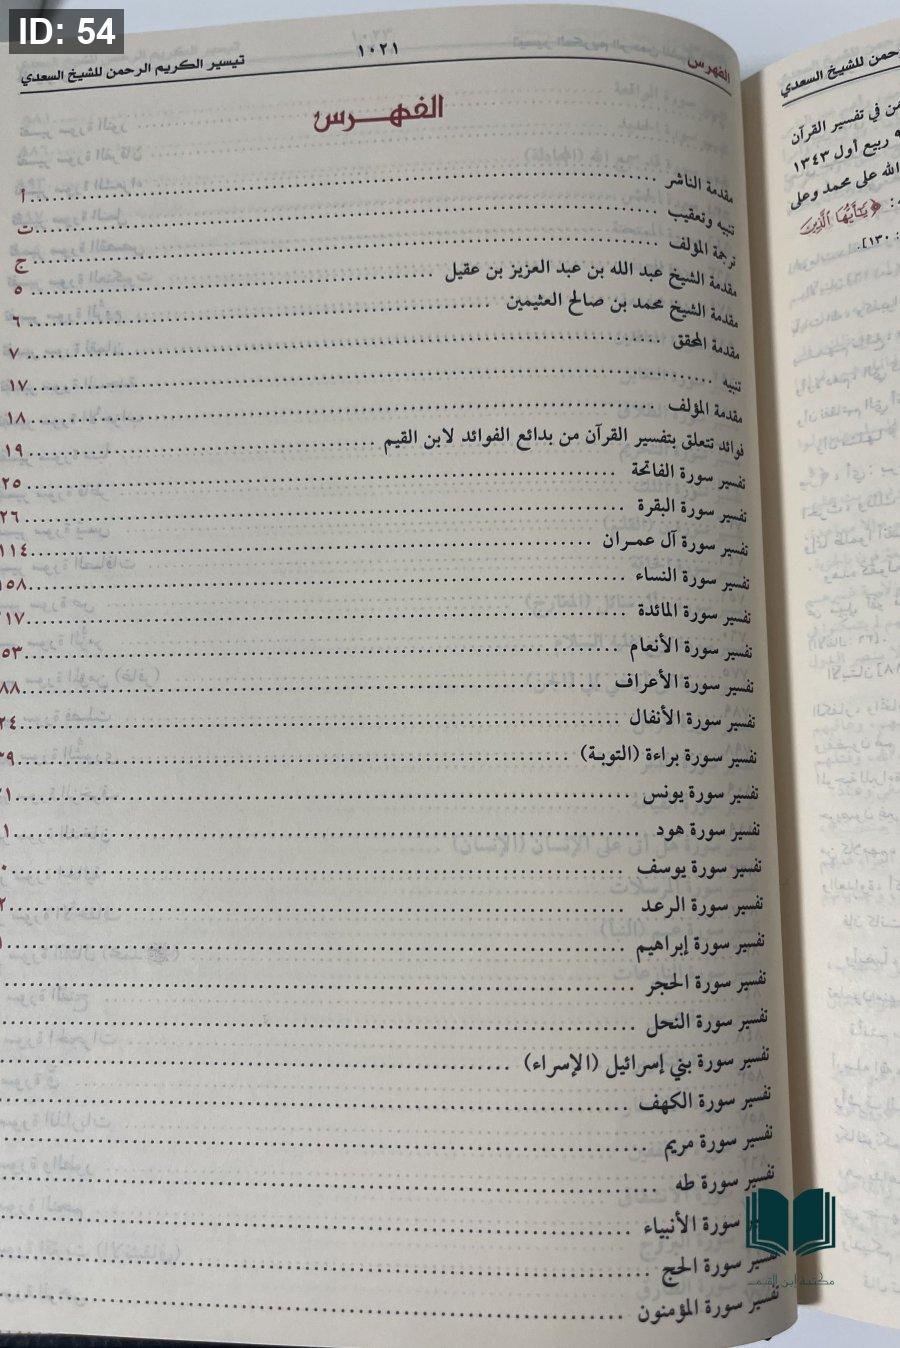 ID: 54
الفهرس
١٠٢١
تيسير الكريم الرحمن للشيخ السعدي
الفهرس
مقدمة الناشر ........ أ
تنبيه وتعقيب ........ ت
ترجمة المؤلف ........ ج
مقدمة الشيخ عبد الله بن عبد العزيز بن عقيل ........ ٥
مقدمة الشيخ محمد بن صالح العثيمين ........ ٦
مقدمة المحقق ........ ٧
تنبيه ........ ١٧
مقدمة المؤلف ........ ١٨
فوائد تتعلق بتفسير القرآن من بدائع الفوائد لابن القيم ........ ١٩
تفسير سورة الفاتحة ........ ٢٥
تفسير سورة البقرة ........ ٢٦
تفسير سورة آل عمران ........ ١١٤
تفسير سورة النساء ........ ١٥٨
تفسير سورة المائدة
تفسير سورة الأنعام
تفسير سورة الأعراف
تفسير سورة الأنفال
تفسير سورة براءة (التوبة)
تفسير سورة يونس
تفسير سورة هود
تفسير سورة يوسف
تفسير سورة الرعد
تفسير سورة إبراهيم
تفسير سورة الحجر
تفسير سورة النحل
تفسير سورة بني إسرائيل (الإسراء)
تفسير سورة الكهف
تفسير سورة مريم
تفسير سورة طه
سورة الأنبياء
سورة الحج
تفسير سورة المؤمنون
للشيخ السعدي
في تفسير القرآن
ربيع أول ١٣٤٣
الله على محمد وعلى
مكتبة ابن القيم